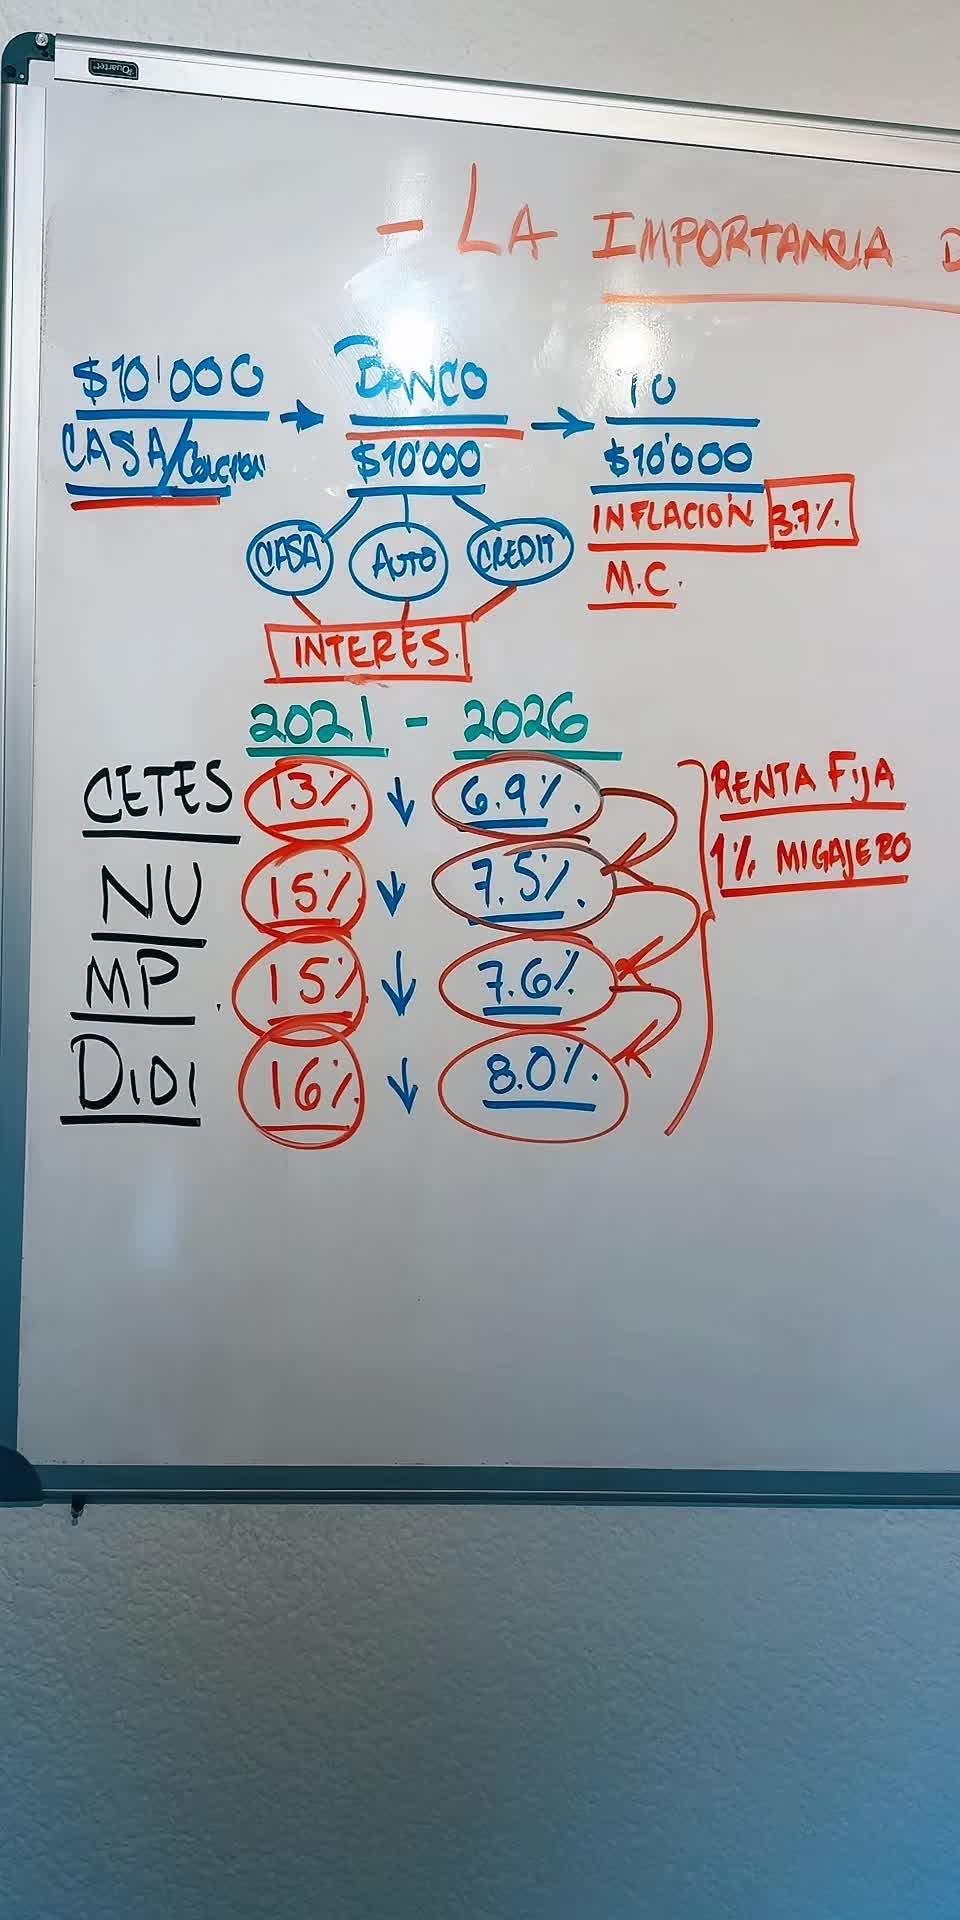 Quartet
- LA IMPORTANCIA D
$10'000 BANCO TU
CASA/COLCHON $10'000 $10'000
INFLACIÓN 3.7%.
CASA AUTO CREDIT
M.C.
INTERES.
2021 - 2026
CETES 13%. ↓ 6.9%. RENTA FIJA
NU 15% ↓ 7.5%. 1% MIGAJERO
MP. 15% ↓ 7.6%.
DIDI 16% ↓ 8.0%.